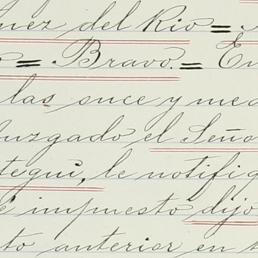 nez del Rio =
= Bravo. = En
las suce y med
Juzgado el Seño
tegui, le notifiq
é impuesto dijo
to anterior en t